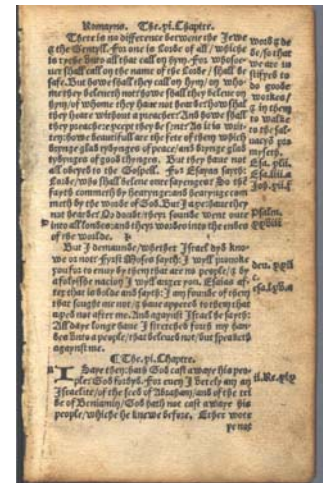 Romayns. The .xi. Chaptre.
There is no difference betwene the Jewe
& the Gentyll. For one is Lorde of all / whiche
is ryche unto all that call on hym. For whoso-
ever shall call on the name of the Lorde / shall be
safe. But howe shall they call on hym / on who-
me they beleveth not? howe shall they beleve on
hym / of whome they have not hearde? how shal
they heare without a preacher? And howe shall
they preache: except they be sent? As it is writ-
ten: howe beautifull are the fete of them which
brynge glad tydynges of peace / and brynge glad
tydynges of good thynges. But they have not
all obeyed to the Gospell. For Esayas sayth:
Lorde / who shall beleve oure sayenges? So the
fayth commeth by hearynge: and hearynge com
meth by the worde of God. But I axe: have they
not hearde? No doubte / theyr sounde went oute
into all londes: and theyr wordes into the endes
of the worlde.
But I demaunde / whether Israel dyd kno-
we or not? Fyrst Moses sayth: I wyll provoke
you for to envy by them that are no people / & by
a folysshe nacion I wyll anger you. Esaias af-
ter that is bolde and sayth: I am founde of them
that sought me not / & have appered to them that
axed not after me. And agaynst Israel he sayth:
All daye longe have I stretched forth my han-
des unto a people / that beleveth not / but speaketh
agaynst me.
C The .xi. Chaptre.
I Saye then: hath God cast awaye his peo-
ple? God forbyd. For even I verely am an
Israelite / of the seed of Abraham / and of the tri
be of Beniamin / God hath not cast awaye his
people / whiche he knewe before. Ether wote
ye not
be / so that
we are iu
stifyed to
do goode
workes /
& in them
to walke
to the sal-
Esa. xlix.
Psalm.
deu.
esa. lxv. a
iii. Re. xix